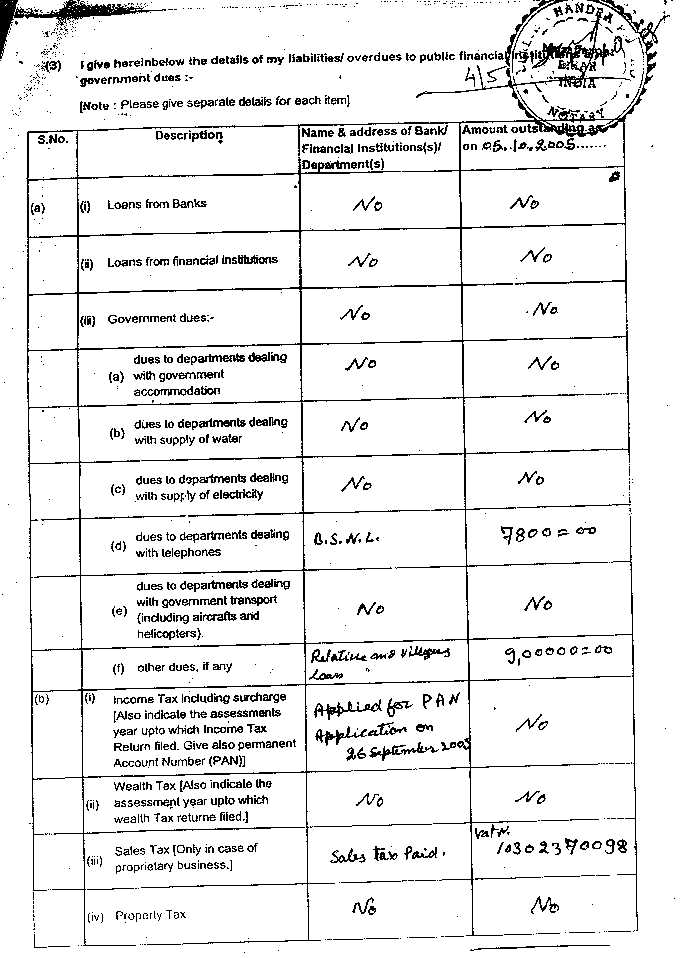 HANDRA
BIHAR
INDIA
NOTARY
4/5
(3) I give hereinbelow the details of my liabilities/ overdues to public financial
government dues :-
[Note : Please give separate details for each item]
S.No. Description Name & address of Bank/ Financial Institutions(s)/ Department(s) Amount outstanding as on 05.10.2005.......
(a) (i) Loans from Banks No No
(ii) Loans from financial institutions No No
(iii) Government dues:- No No
(a) dues to departments dealing with government accommodation No No
(b) dues to departments dealing with supply of water No No
(c) dues to departments dealing with supply of electricity No No
(d) dues to departments dealing with telephones B.S.N.L. 7800=00
(e) dues to departments dealing with government transport (including aircrafts and helicopters). No No
(f) other dues, if any Relative and Villegers loans 9,00000=00
(b) (i) Income Tax including surcharge [Also indicate the assessments year upto which Income Tax Return filed. Give also permanent Account Number (PAN)] Applied for PAN Application on 26 September 2005 No
(ii) Wealth Tax [Also indicate the assessment year upto which wealth Tax returne filed.] No No
(iii) Sales Tax [Only in case of proprietary business.] Sales tax Paid. Vat N. 10302370098
(iv) Property Tax No No